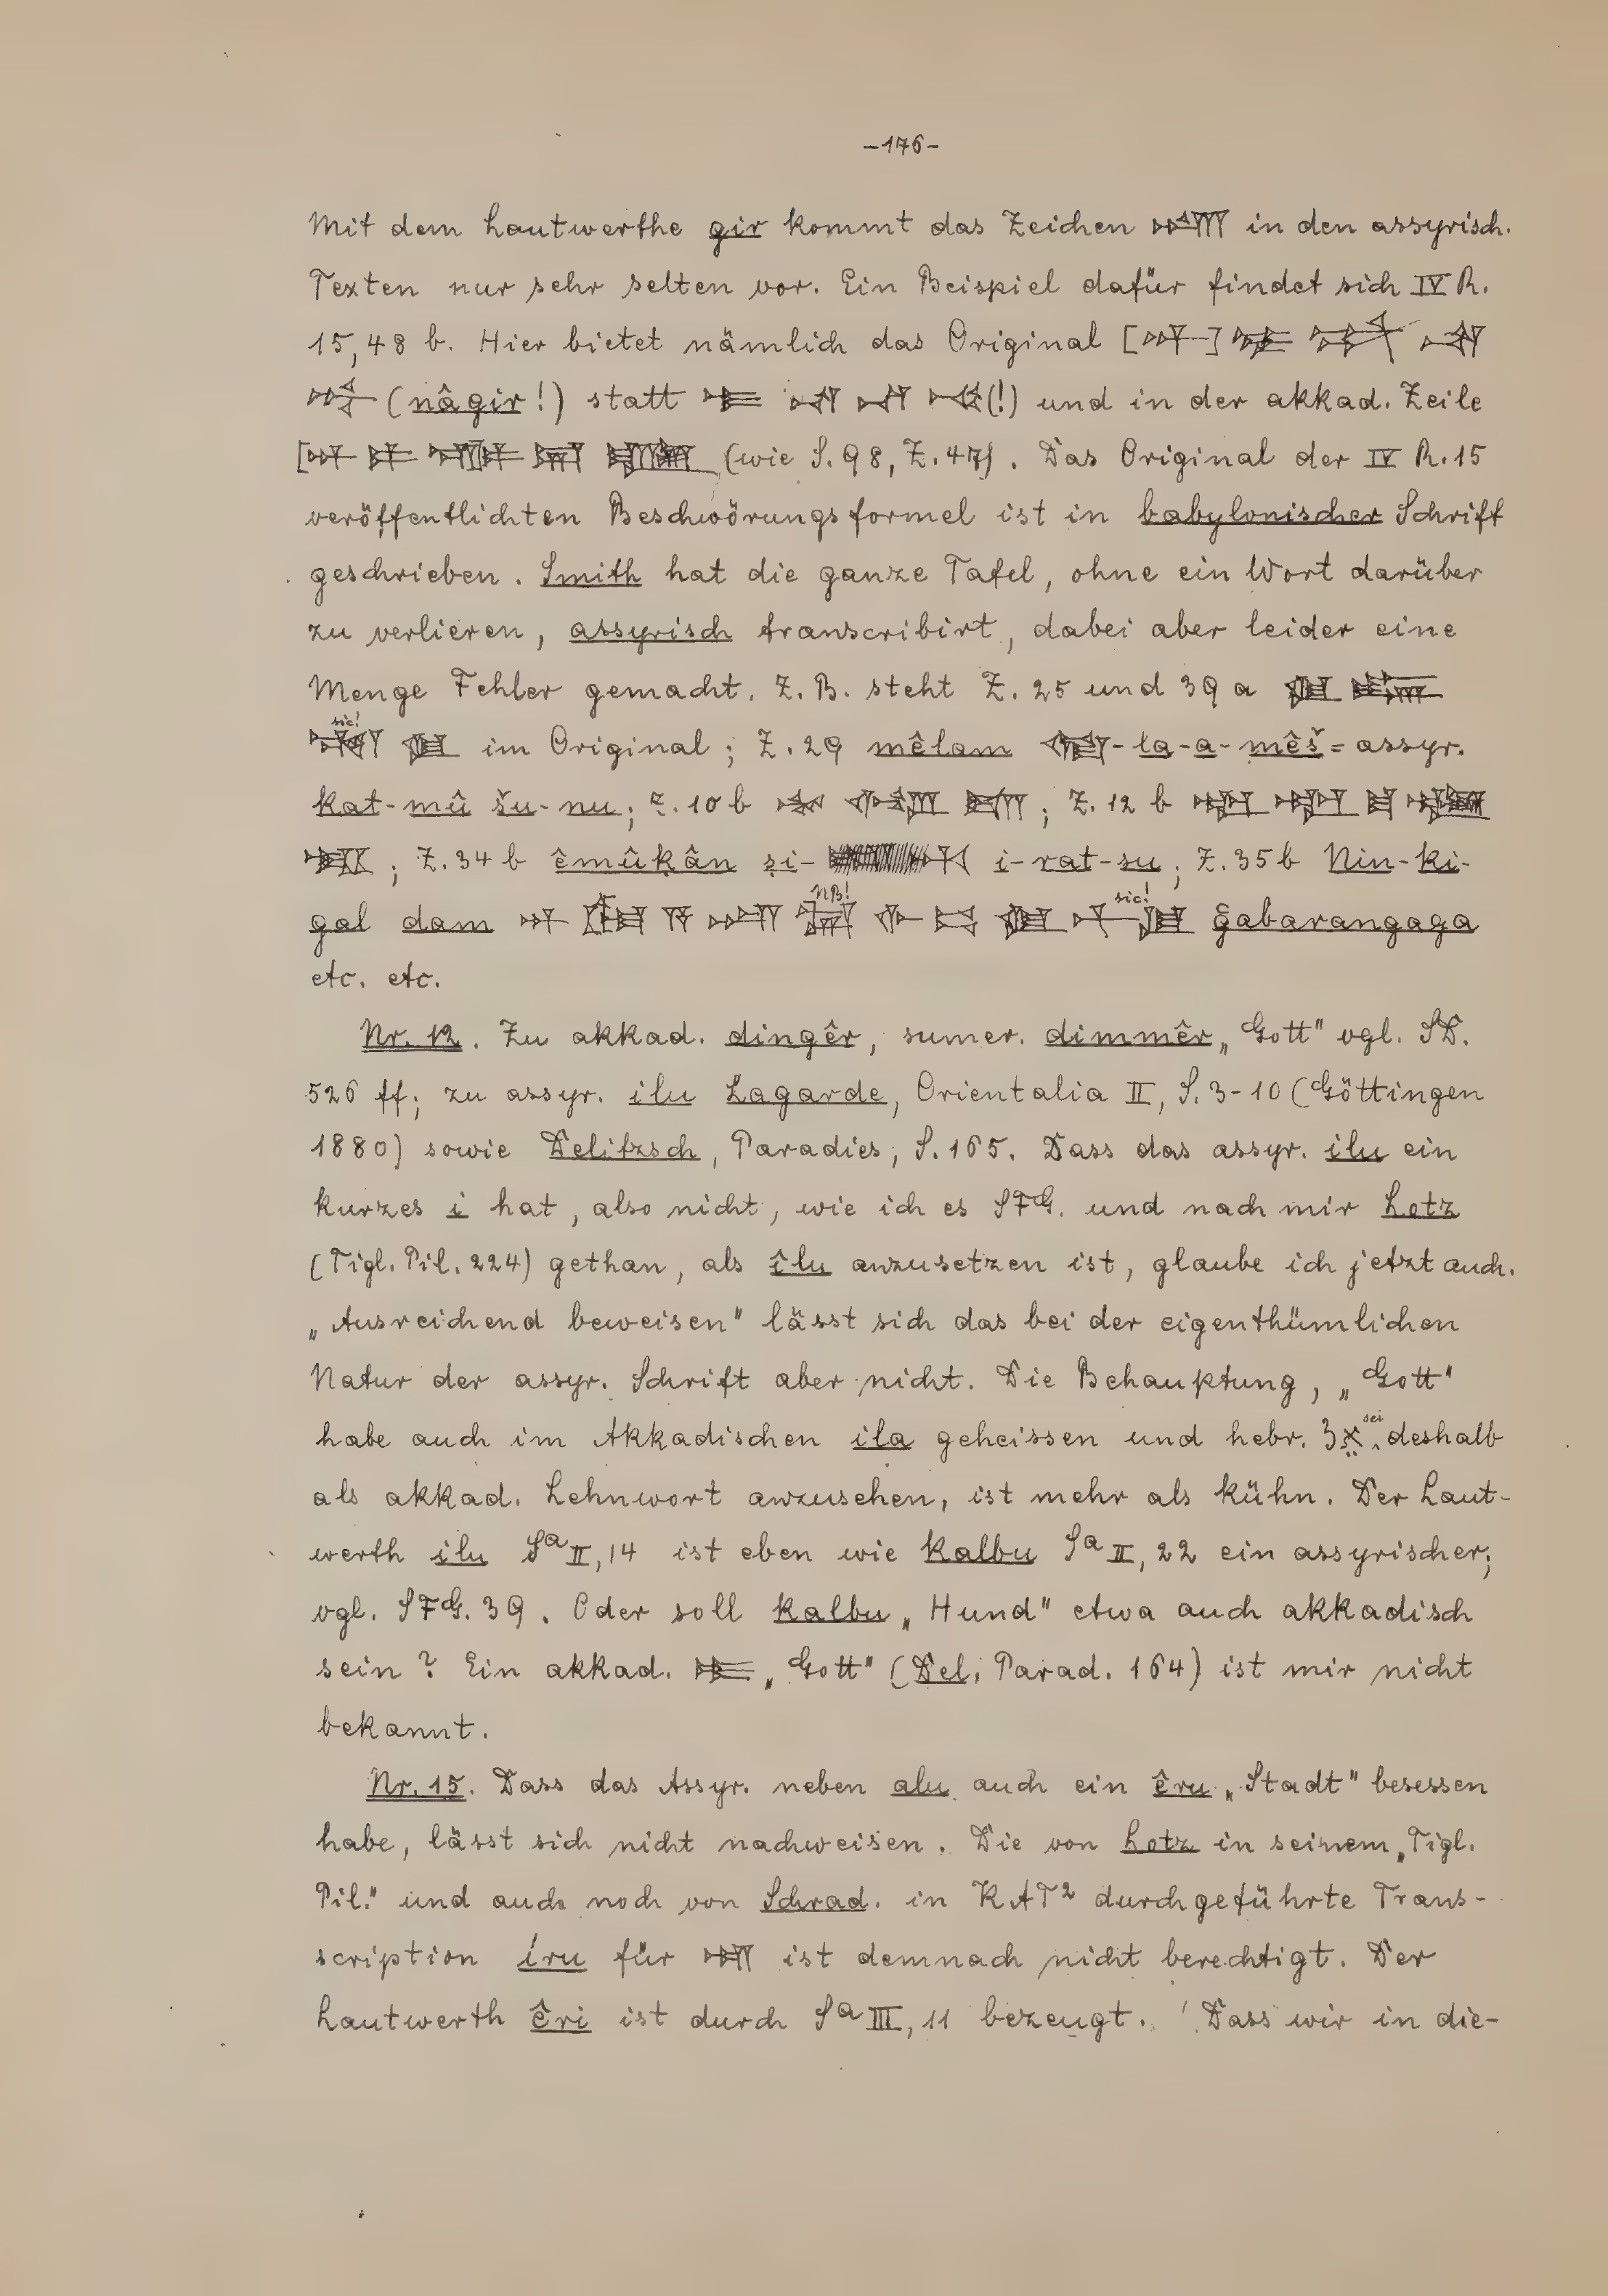 -176-
Mit dem Lautwerthe gir kommt das Zeichen in den assyrisch.
Texten nur sehr selten vor. Ein Beispiel dafür findet sich IV R.
15, 48 b. Hier bietet nämlich das Original [ ]
(nâgir!) statt (!) und in der akkad. Zeile
[ (wie S. 98, Z. 47). Das Original der IV R. 15
veröffentlichten Beschwörungsformel ist in babylonischer Schrift
geschrieben. Smith hat die ganze Tafel, ohne ein Wort darüber
zu verlieren, assyrisch transcribirt, dabei aber leider eine
Menge Fehler gemacht. Z. B. steht Z. 25 und 39 a
sic! im Original; Z. 29 mêlam -la-a-mêš = assyr.
kat-mû šu-nu; Z. 10 b ; Z. 12 b
; Z. 34 b êmûkân ṣi- i-rat-su; Z. 35 b Nin-ki-
gal dam NB! sic! g̃abarangaga
etc. etc.
Nr. 12. Zu akkad. dingêr, sumer. dimmêr „Gott" vgl. SD.
526 ff; zu assyr. ilu Lagarde, Orientalia II, S. 3-10 (Göttingen
1880) sowie Delitzsch, Paradies, S. 165. Dass das assyr. ilu ein
kurzes i hat, also nicht, wie ich es SFG. und nach mir Lotz
(Tigl. Pil. 224) gethan, als îlu anzusetzen ist, glaube ich jetzt auch.
„Ausreichend beweisen" lässt sich das bei der eigenthümlichen
Natur der assyr. Schrift aber nicht. Die Behauptung, „Gott"
habe auch im Akkadischen ila geheissen und hebr. אֵל sei deshalb
als akkad. Lehnwort anzusehen, ist mehr als kühn. Der Laut-
werth ilu Sa II, 14 ist eben wie kalbu Sa II, 22 ein assyrischer;
vgl. SFG. 39. Oder soll kalbu „Hund" etwa auch akkadisch
sein? Ein akkad. „Gott" (Del. Parad. 164) ist mir nicht
bekannt.
Nr. 15. Dass das Assyr. neben alu auch ein êru „Stadt" besessen
habe, lässt sich nicht nachweisen. Die von Lotz in seinem „Tigl.
Pil." und auch noch von Schrad. in KAT² durchgeführte Trans-
scription íru für ist demnach nicht berechtigt. Der
Lautwerth êri ist durch Sa III, 11 bezeugt. Dass wir in die-